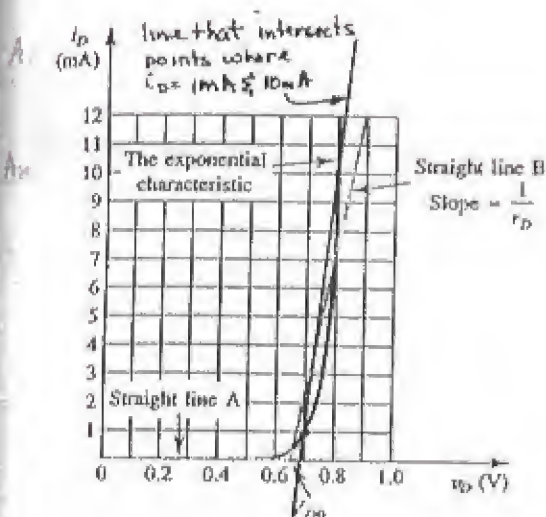 line that intersects
points where
i_D = 1mA & 10mA
i_D
(mA)
12
11
10
9
8
7
6
5
4
3
2
1
The exponential
characteristic
Straight line B
Slope = 1/r_D
Straight line A
0
0.2
0.4
0.6
0.8
1.0
v_D (V)
V_D0